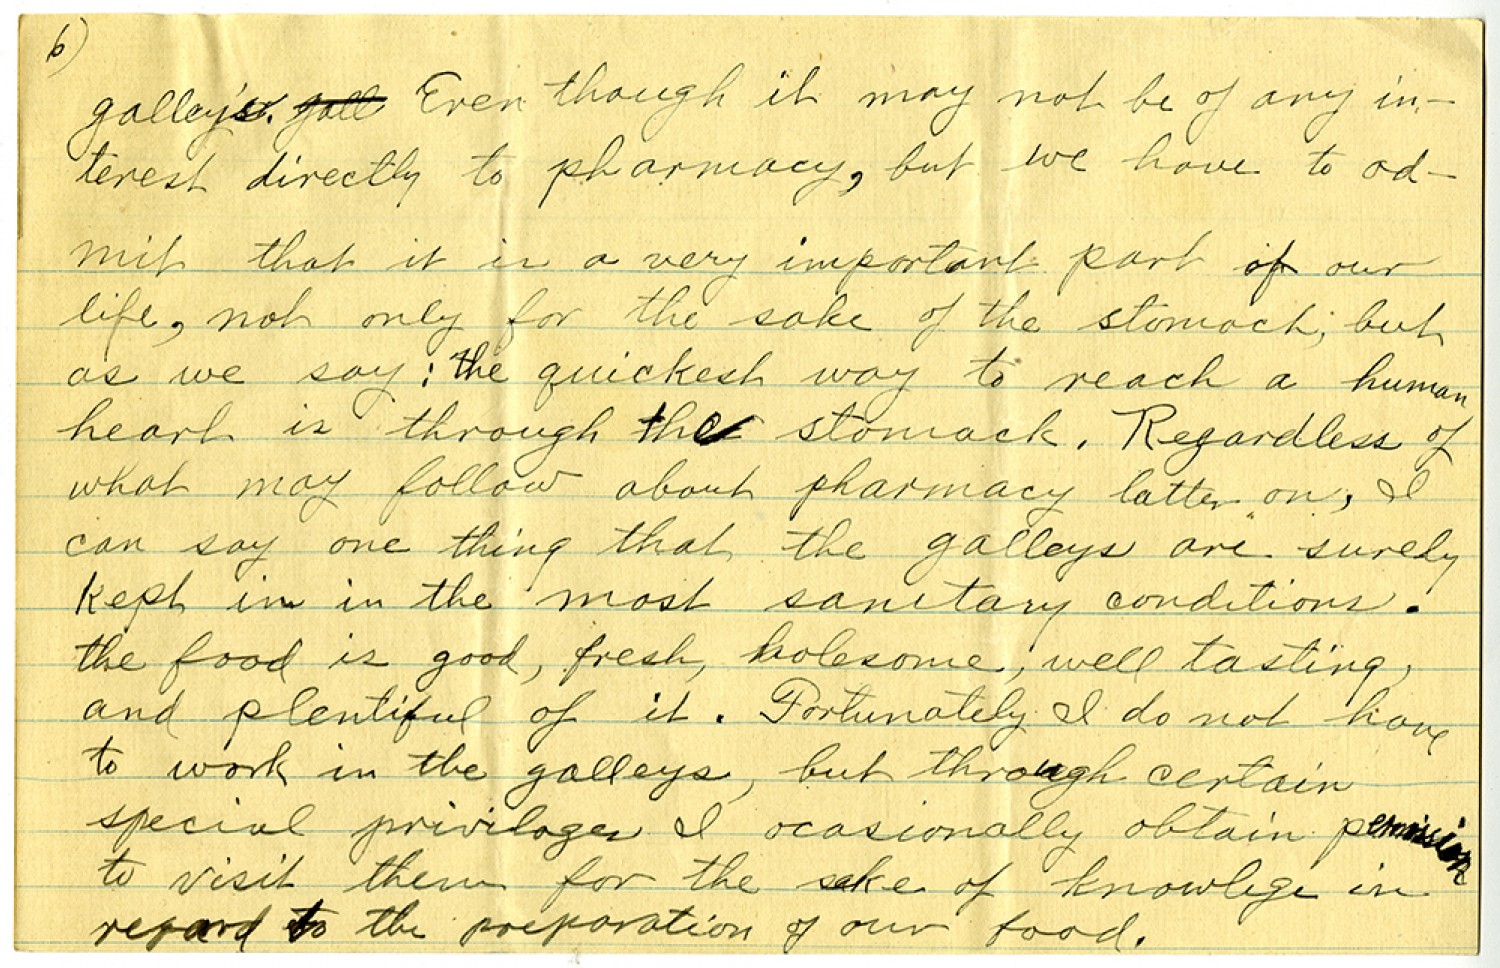 6)
galley's. gall Even though it may not be of any in-
terest directly to pharmacy, but we have to ad-
mit that it is a very important part of our
life, not only for the sake of the stomach, but
as we say: the quickest way to reach a human
heart is through the stomack. Regardless of
what may follow about pharmacy latter on, I
can say one thing that the galleys are surely
kept in in the most sanitary conditions.
the food is good, fresh, holesome, well tasting,
and plentiful of it. Fortunately I do not have
to work in the galleys, but through certain
special priviloges I ocasionally obtain permission
to visit them for the sake of knowlege in
regard to the preparation of our food.